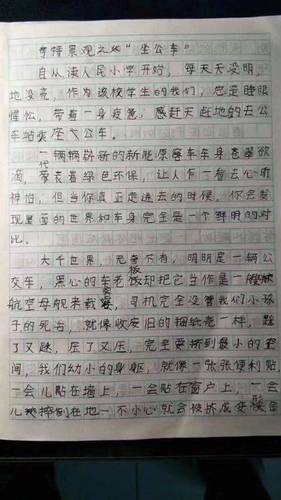 奇特景观之以"坐公车"
自从读人民小学开始，每天天没明，
地没亮，作为该校学生的我们，总是睡眼
惺忪，带着一身疲惫，感赶天赶地的去公
车站坐公车。
一辆辆崭新的新能原客车车身苍翠欲
滴，代表着绿色环保，让人乍一看去心旷
神怡，但当你真正走进去的时候，你会发
现里面的世界和车身完全是一个鲜明的对
比。
大千世界，无奇不有，明明是一辆公
交车，黑心的车老板却把它当作是一艘
航空母舰来载客，司机完全没管我们小孩
子的死活，就像收废旧的捆纸壳一样，踩
了又踩，压了又压，完全要挤到最小的空
间，我们幼小的身躯，就像一张张便利贴，
一会儿贴在墙上，一会贴在窗户上，一会
儿摔倒在地一不小心就会被挤成变